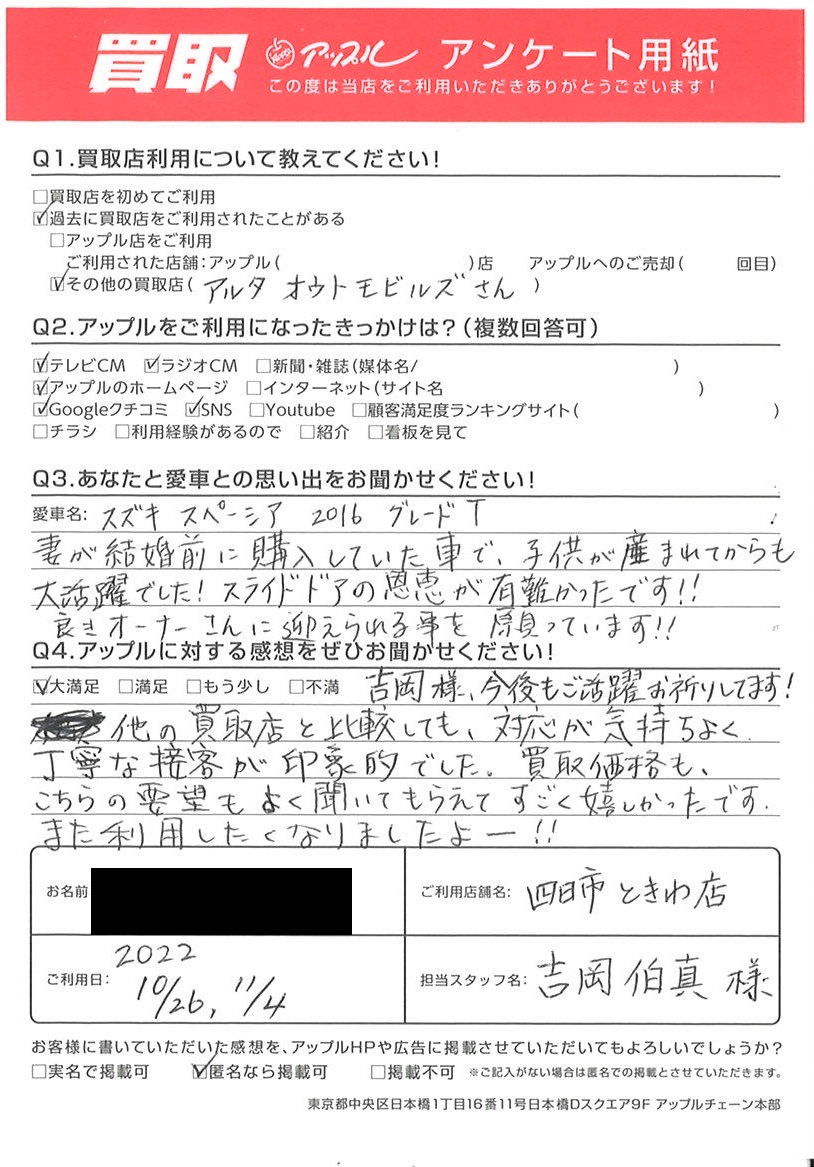 買取 アップル アンケート用紙
この度は当店をご利用いただきありがとうございます!
Q1.買取店利用について教えてください!
□買取店を初めてご利用
☑過去に買取店をご利用されたことがある
□アップル店をご利用
ご利用された店舗:アップル( )店 アップルへのご売却( 回目)
☑その他の買取店(アルタ オウトモビルズさん)
Q2.アップルをご利用になったきっかけは?(複数回答可)
☑テレビCM ☑ラジオCM □新聞・雑誌(媒体名/ )
☑アップルのホームページ □インターネット(サイト名 )
☑Googleクチコミ ☑SNS □Youtube □顧客満足度ランキングサイト( )
□チラシ □利用経験があるので □紹介 □看板を見て
Q3.あなたと愛車との思い出をお聞かせください!
愛車名: スズキ スペーシア 2016 グレードT
妻が結婚前に購入していた車で、子供が産まれてからも
大活躍でした!スライドドアの恩恵が有難かったです!!
良きオーナーさんに迎えられる事を願っています!!
Q4.アップルに対する感想をぜひお聞かせください!
☑大満足 □満足 □もう少し □不満 吉岡様、今後もご活躍お祈りしてます!
他の買取店と比較しても、対応が気持ちよく
丁寧な接客が印象的でした。買取価格も、
こちらの要望もよく聞いてもらえてすごく嬉しかったです.
また利用したくなりましたよー!!
お名前 ご利用店舗名: 四日市ときわ店
ご利用日: 2022 10/26, 11/4 担当スタッフ名: 吉岡 伯真 様
お客様に書いていただいた感想を、アップルHPや広告に掲載させていただいてもよろしいでしょうか?
□実名で掲載可 ☑匿名なら掲載可 □掲載不可 ※ご記入がない場合は匿名での掲載とさせていただきます。
東京都中央区日本橋1丁目16番11号日本橋Dスクエア9F アップルチェーン本部